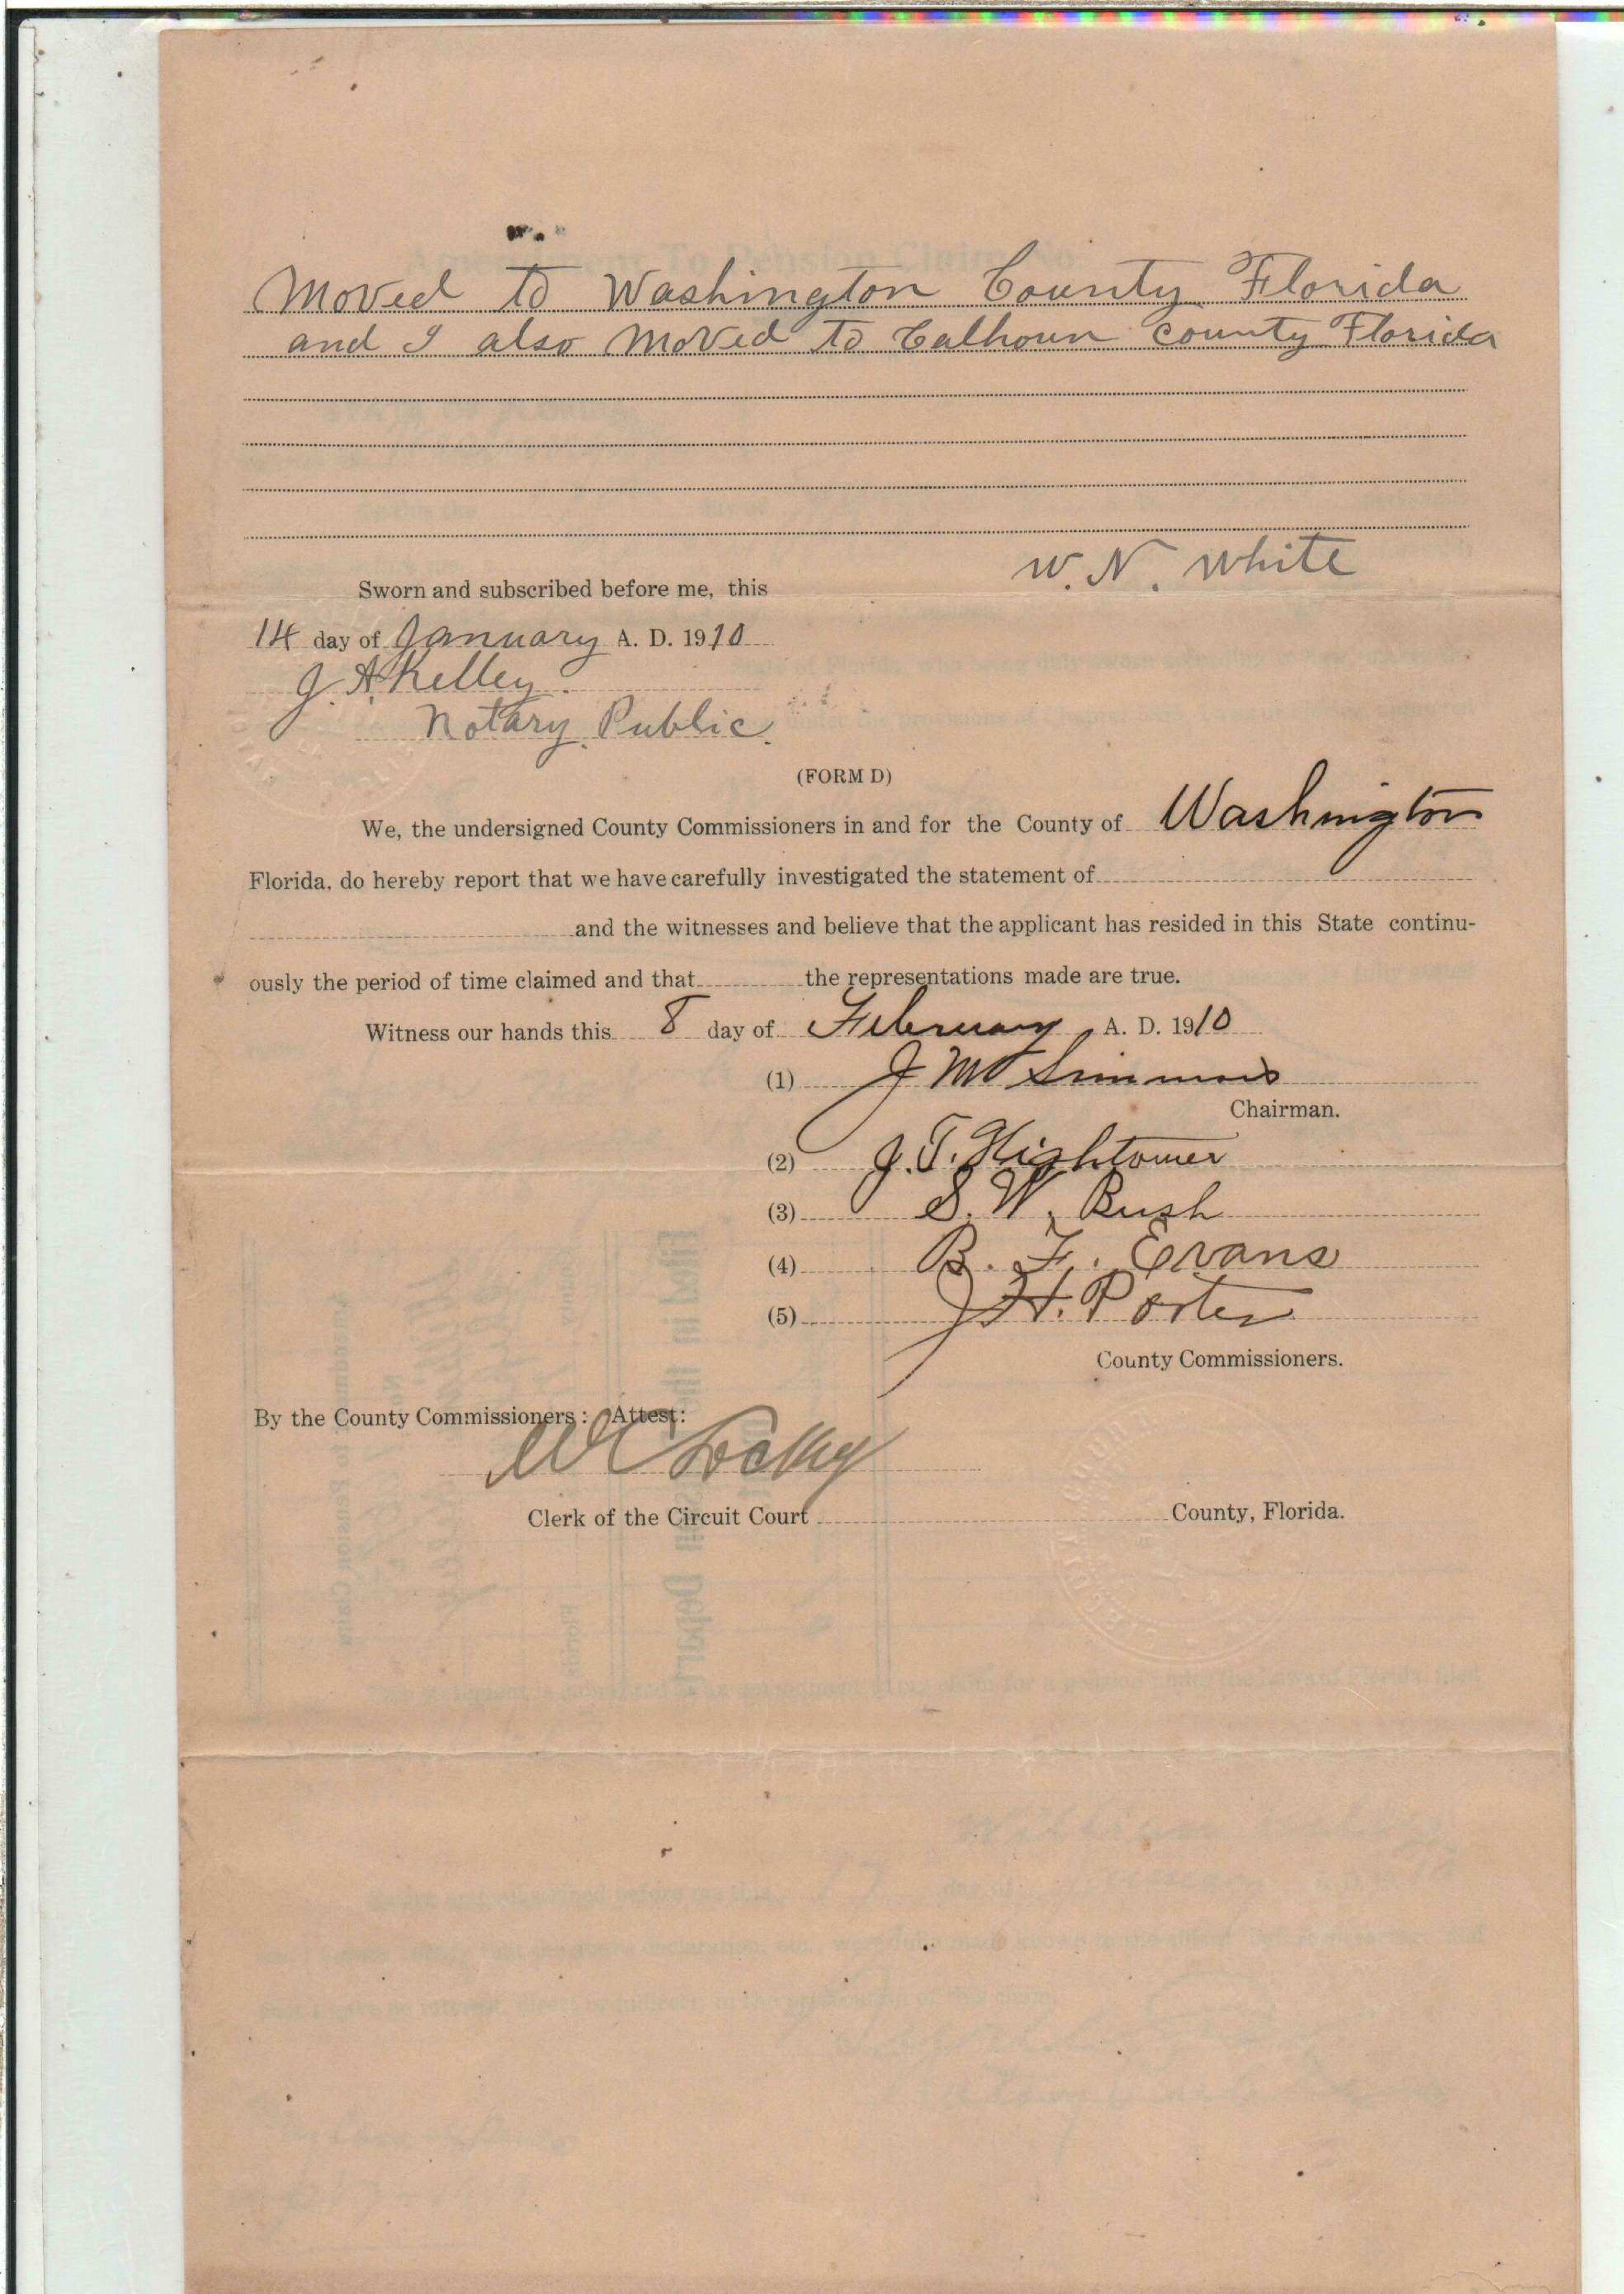 Moved to Washington County Florida
and I also Moved to Calhoun county Florida
W. N. White
Sworn and subscribed before me, this
14 day of January A. D. 1910
J. A. Kelley.
Notary Public.
(FORM D)
We, the undersigned County Commissioners in and for the County of Washington
Florida, do hereby report that we have carefully investigated the statement of
and the witnesses and believe that the applicant has resided in this State continu-
ously the period of time claimed and that the representations made are true.
Witness our hands this 8 day of February A. D. 1910
(1) J Mc Simmons
Chairman.
(2) J. T. Hightower
(3) S. W. Bush
(4) B. F. Evans
(5) J H. Porter
County Commissioners.
By the County Commissioners: Attest:
W C
Clerk of the Circuit Court County, Florida.